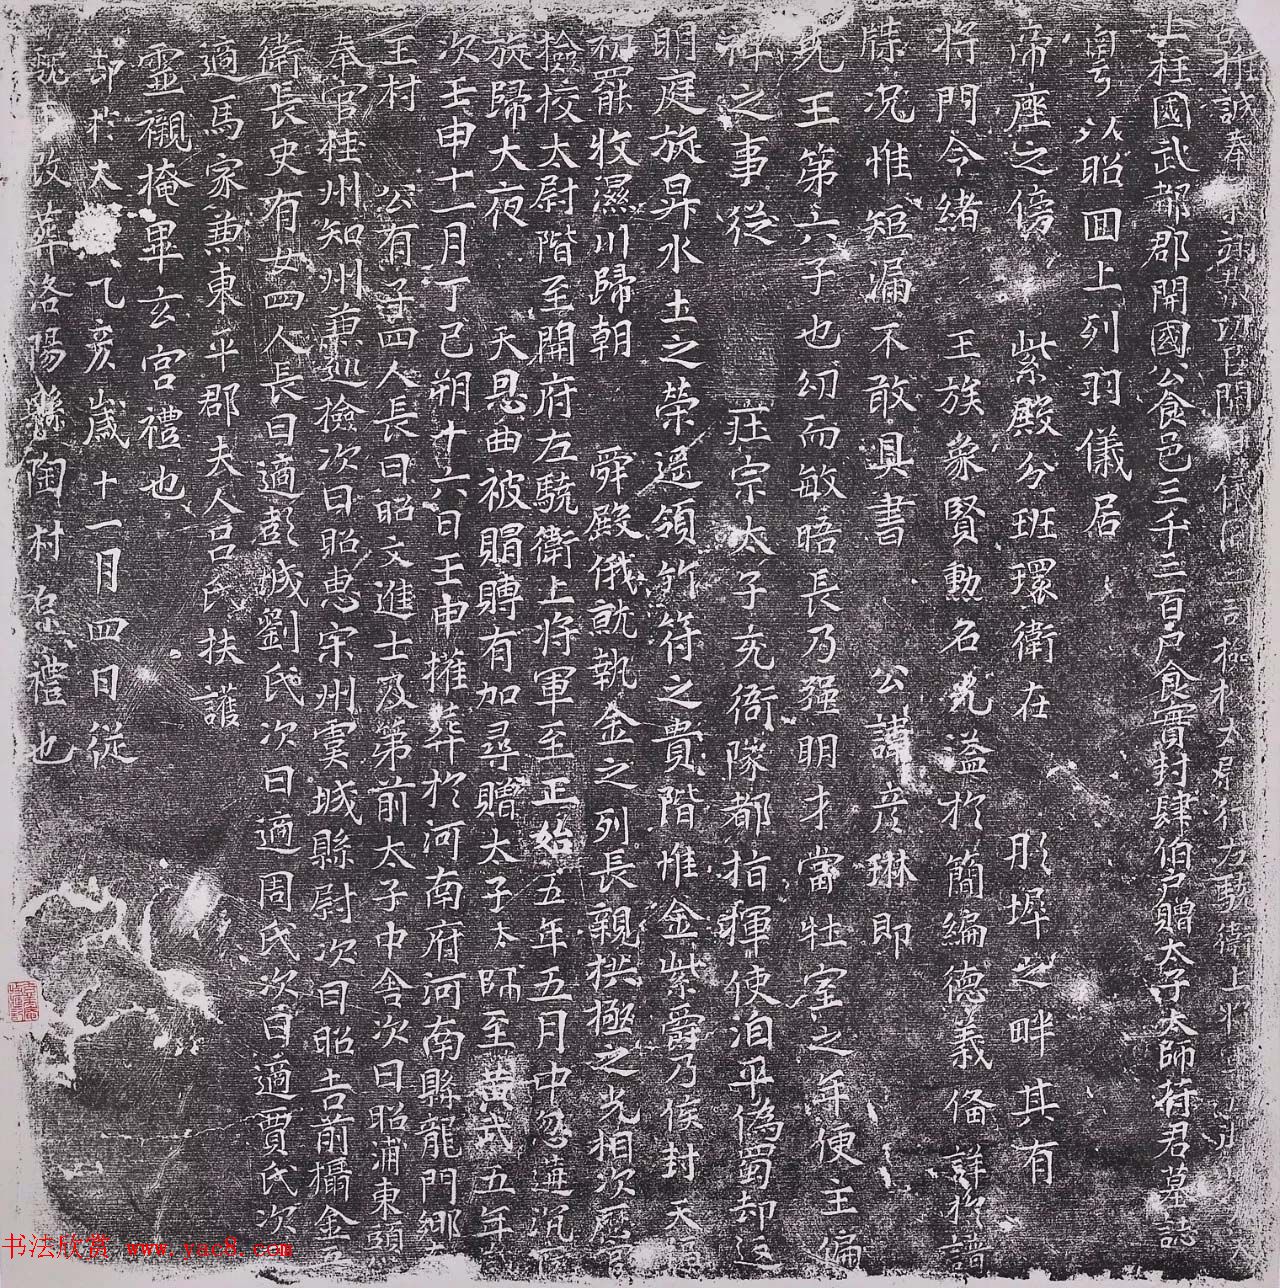 推誠奉 功臣開 儀同三司檢校太尉行左驍衛上將軍
上柱國武都郡開國公食邑三千三百戶食實封肆伯戶贈太子太師苻君墓誌
昭回上列羽儀居
帝座之傍 紫殿分班環衛在 彤墀之畔其有
將門令緒 王族象賢勳名光溢於簡編德義俻詳於譜
牒況惟短漏不敢具書 公諱彥琳即
王第六子也幼而敏晤長乃强明才當壯室之年便主偏
裨之事從 莊宗太子充衙隊都指揮使洎平偽蜀却返
明庭旋昇水土之榮遥領竹符之貴階惟金紫爵乃侯封 天
初罷收濕川歸朝 舜殿俄就執金之列長親拱極之光相次歷
檢校太尉階至開府左驍衛上將軍至正始五年五月中忽遘沉
旋歸大夜 天恩曲被賵賻有加尋贈太子太師至黃武五年
次壬申十一月丁巳朔十六日壬申權葬於河南府河南縣龍門鄉
王村 公有子四人長曰昭文進士及第前太子中舍次曰昭浦東頭
奉官桂州知州兼巡檢次曰昭惠宋州虞城縣尉次曰昭吉前攝金吾
衛長史有女四人長曰適彭城劉氏次曰適周氏次曰適賈氏次
適馬家兼東平郡夫人呂氏扶護
靈櫬掩畢玄宮禮也
却於大 乙亥歲十一月四日從
改葬洛陽縣陶村原禮也
书法欣赏 www.yac8.com